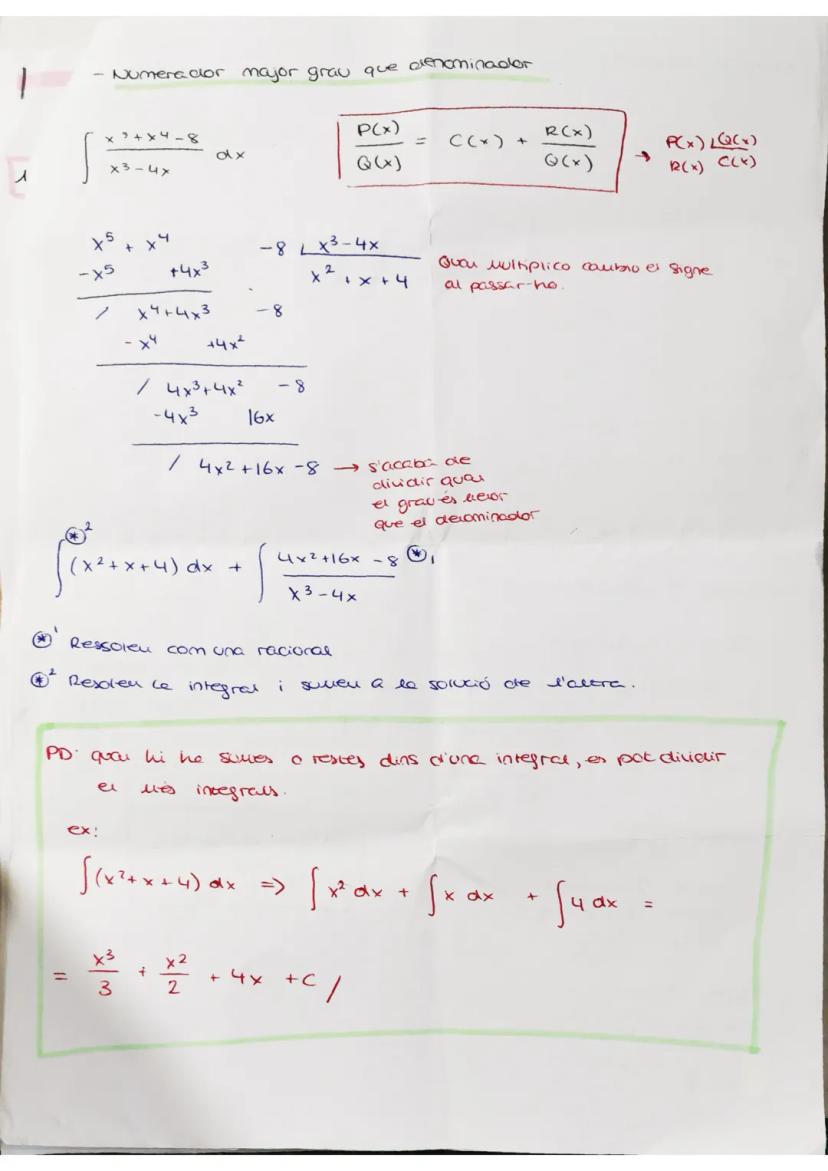 - Numerador major grau que denominador
1
∫ x⁵+x⁴-8 / x³-4x dx
P(x)/Q(x) = C(x) + R(x)/Q(x)
→ P(x) ∟Q(x)
R(x) C(x)
x⁵ + x⁴ -8 ∟ x³-4x
-x⁵ +4x³ x² + x + 4
/ x⁴+4x³ -8
- x⁴ +4x²
/ 4x³+4x² -8
-4x³ 16x
/ 4x²+16x -8
Quan multiplico canvio el signe
al passar-ho.
→ s'acaba de
dividir quan
el grau és menor
que el denominador
∫(x²+x+4) dx + ∫ 4x²+16x-8 / x³-4x
⊛² ⊛₁
⊛¹ Ressoleu com una racional
⊛² Resoleu la integral i sumeu a la solució de l'altra.
PD: quan hi ha sumes o restes dins d'una integral, es pot dividir
en més integrals.
ex:
∫(x²+x+4) dx => ∫x² dx + ∫x dx + ∫4 dx =
= x³/3 + x²/2 + 4x + C /